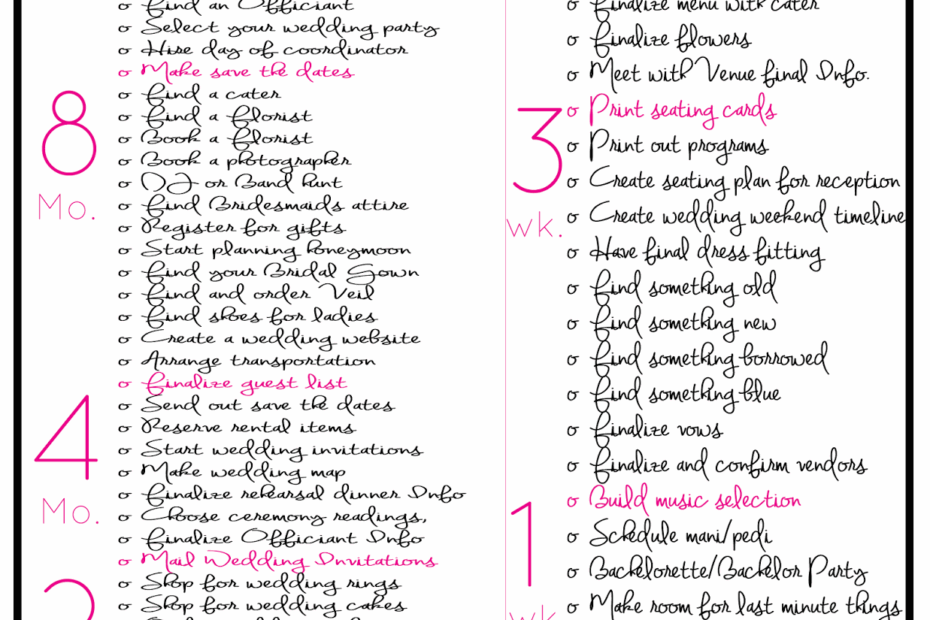 o Find an Officiant
o Select your wedding party
o Hire day of coordinator
o Make save the dates
o Find a cater
o Find a florist
o Book a florist
o Book a photographer
o DJ or Band hunt
o Find Bridesmaids attire
o Register for gifts
o Start planning honeymoon
o Find your Bridal Gown
o Find and order Veil
o Find shoes for ladies
o Create a wedding website
o Arrange transportation
8
Mo.
o Finalize guest list
o Send out save the dates
o Reserve rental items
o Start wedding invitations
o Make wedding map
o Finalize rehearsal dinner Info
o Choose ceremony readings,
o Finalize Officiant Info
4
Mo.
o Mail Wedding Invitations
o Shop for wedding rings
o Shop for wedding cakes
2
o Finalize menu with cater
o Finalize flowers
o Meet with Venue final Info.
o Print seating cards
o Print out programs
o Create seating plan for reception
o Create wedding weekend timeline
o Have final dress fitting
o Find something old
o Find something new
o Find something borrowed
o Find something blue
o Finalize vows
o Finalize and confirm vendors
3
wk.
o Build music selection
o Schedule mani/pedi
o Bachelorette/Bachelor Party
o Make room for last minute things
1
wk.